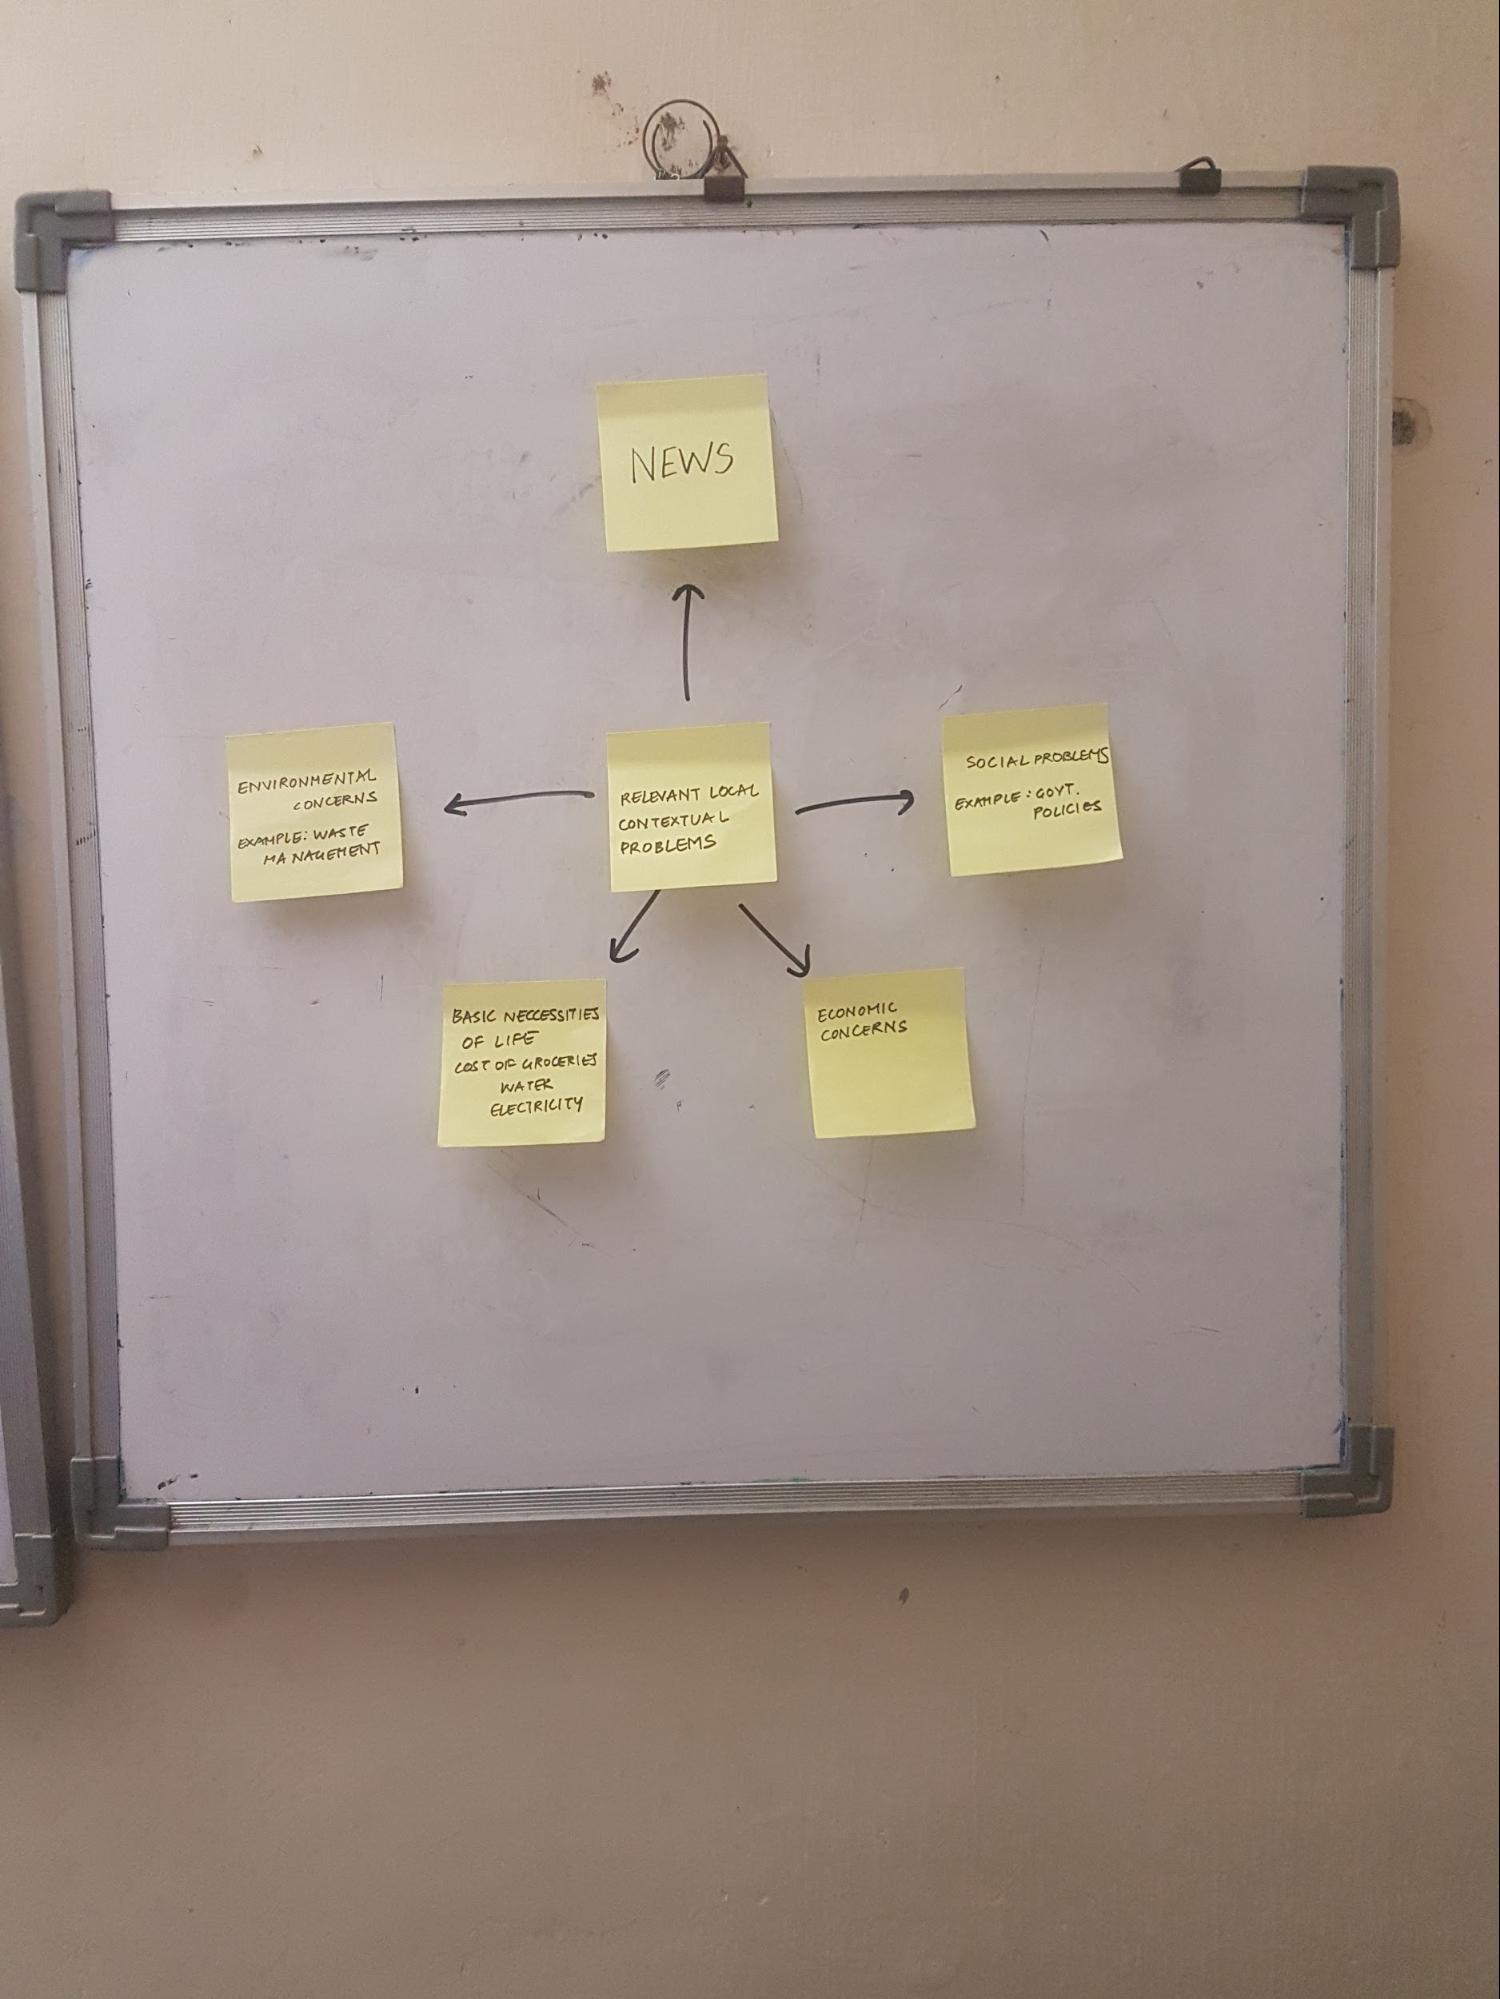 NEWS
ENVIRONMENTAL
CONCERNS
EXAMPLE: WASTE
MANAGEMENT
RELEVANT LOCAL
CONTEXTUAL
PROBLEMS
SOCIAL PROBLEMS
EXAMPLE: GOVT.
POLICIES
BASIC NECCESSITIES
OF LIFE
COST OF GROCERIES
WATER
ELECTRICITY
ECONOMIC
CONCERNS